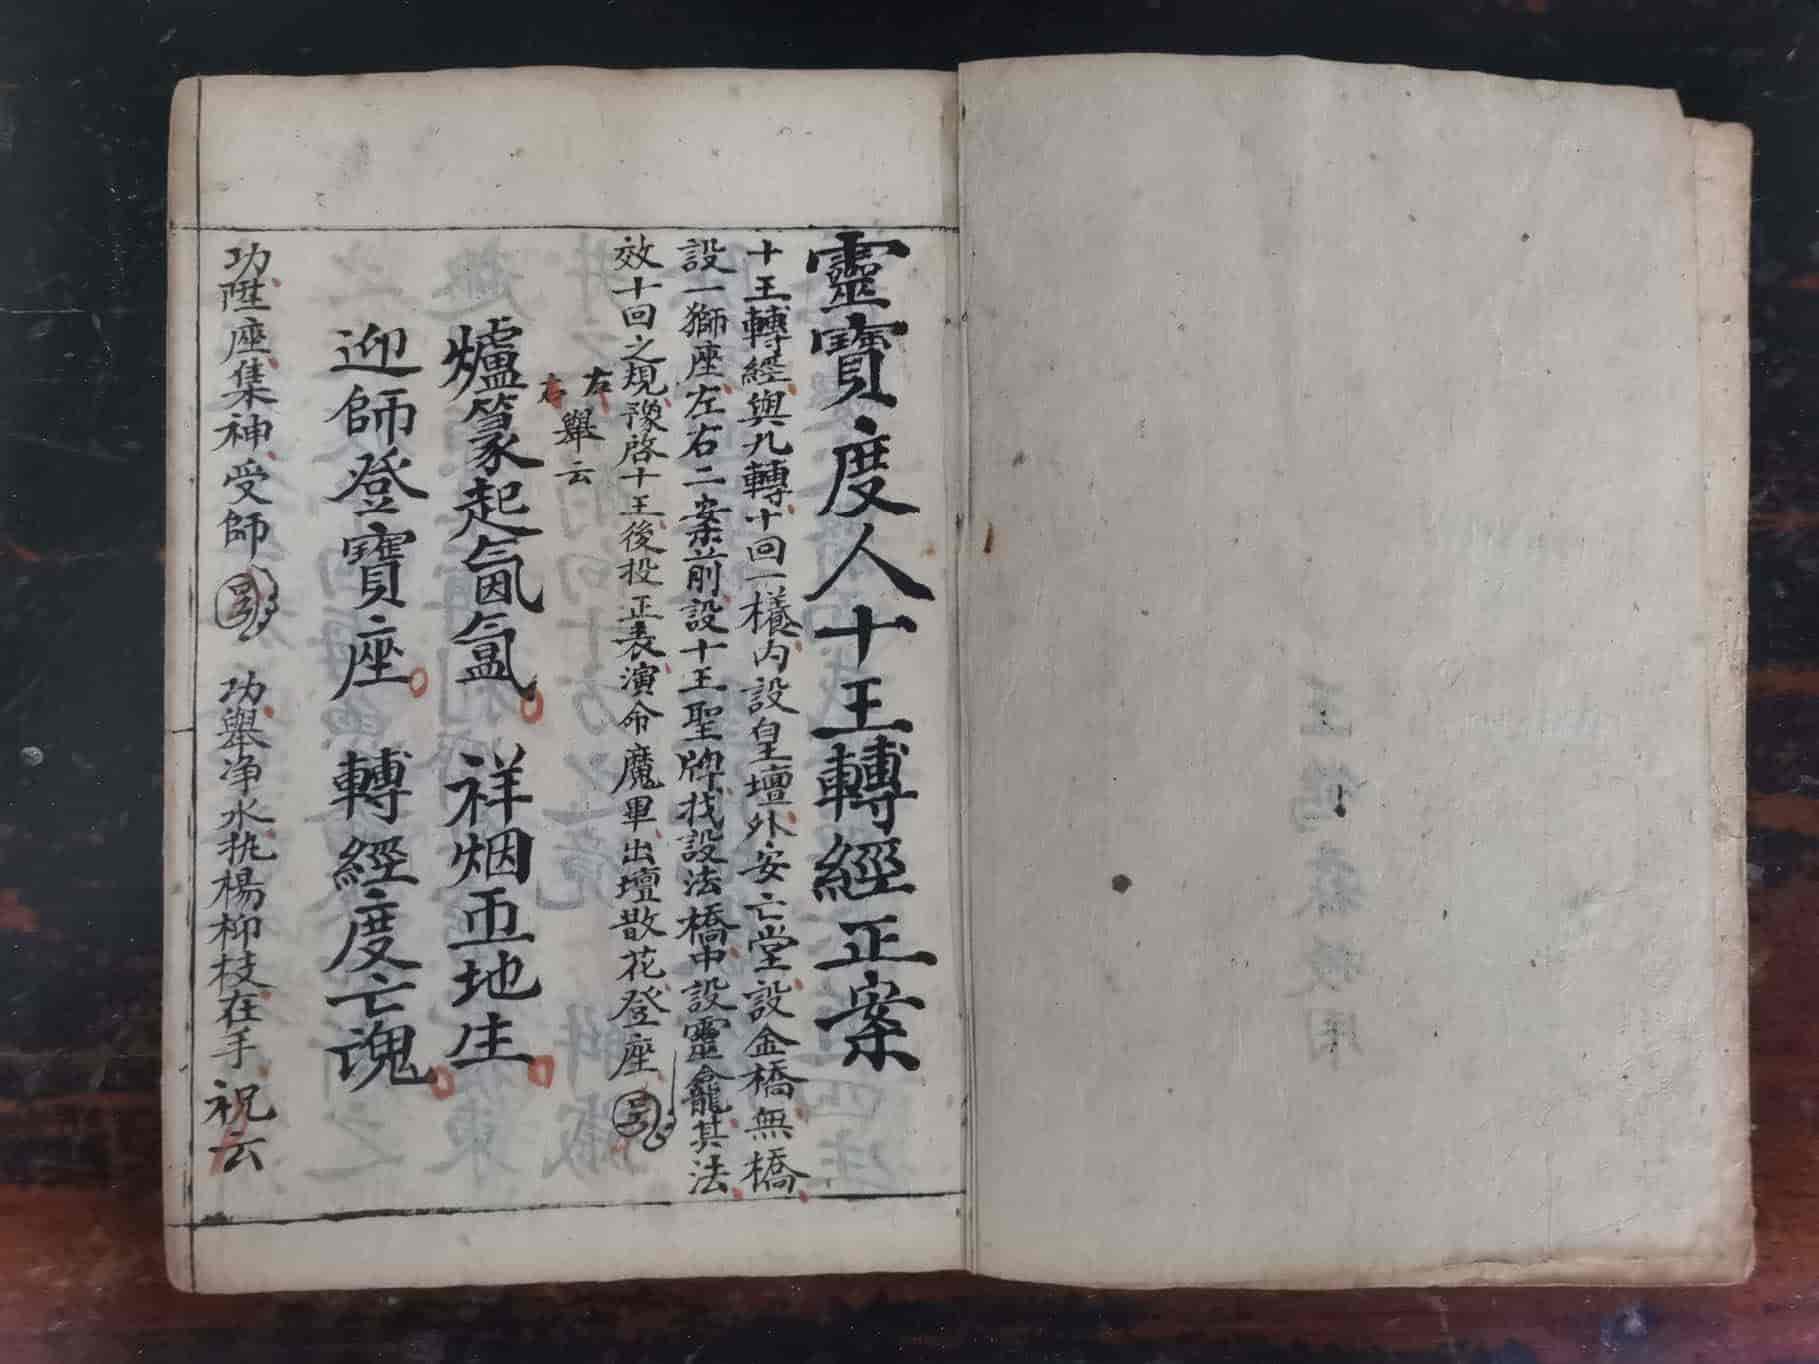 靈寶度人十王轉經正案
十王轉經與九轉十回一樣內設皇壇外安亡堂設金橋無橋
設一獅座左右二案前設十王聖牌找設法橋中設靈龕其法
效十回之規豫啓十王後投正表演命魔畢出壇散花登座
左右舉云
爐篆起氤氳 祥烟匝地生
迎師登寶座 轉經度亡魂
功陞座集神受師 功舉净水执楊柳枝在手祝云